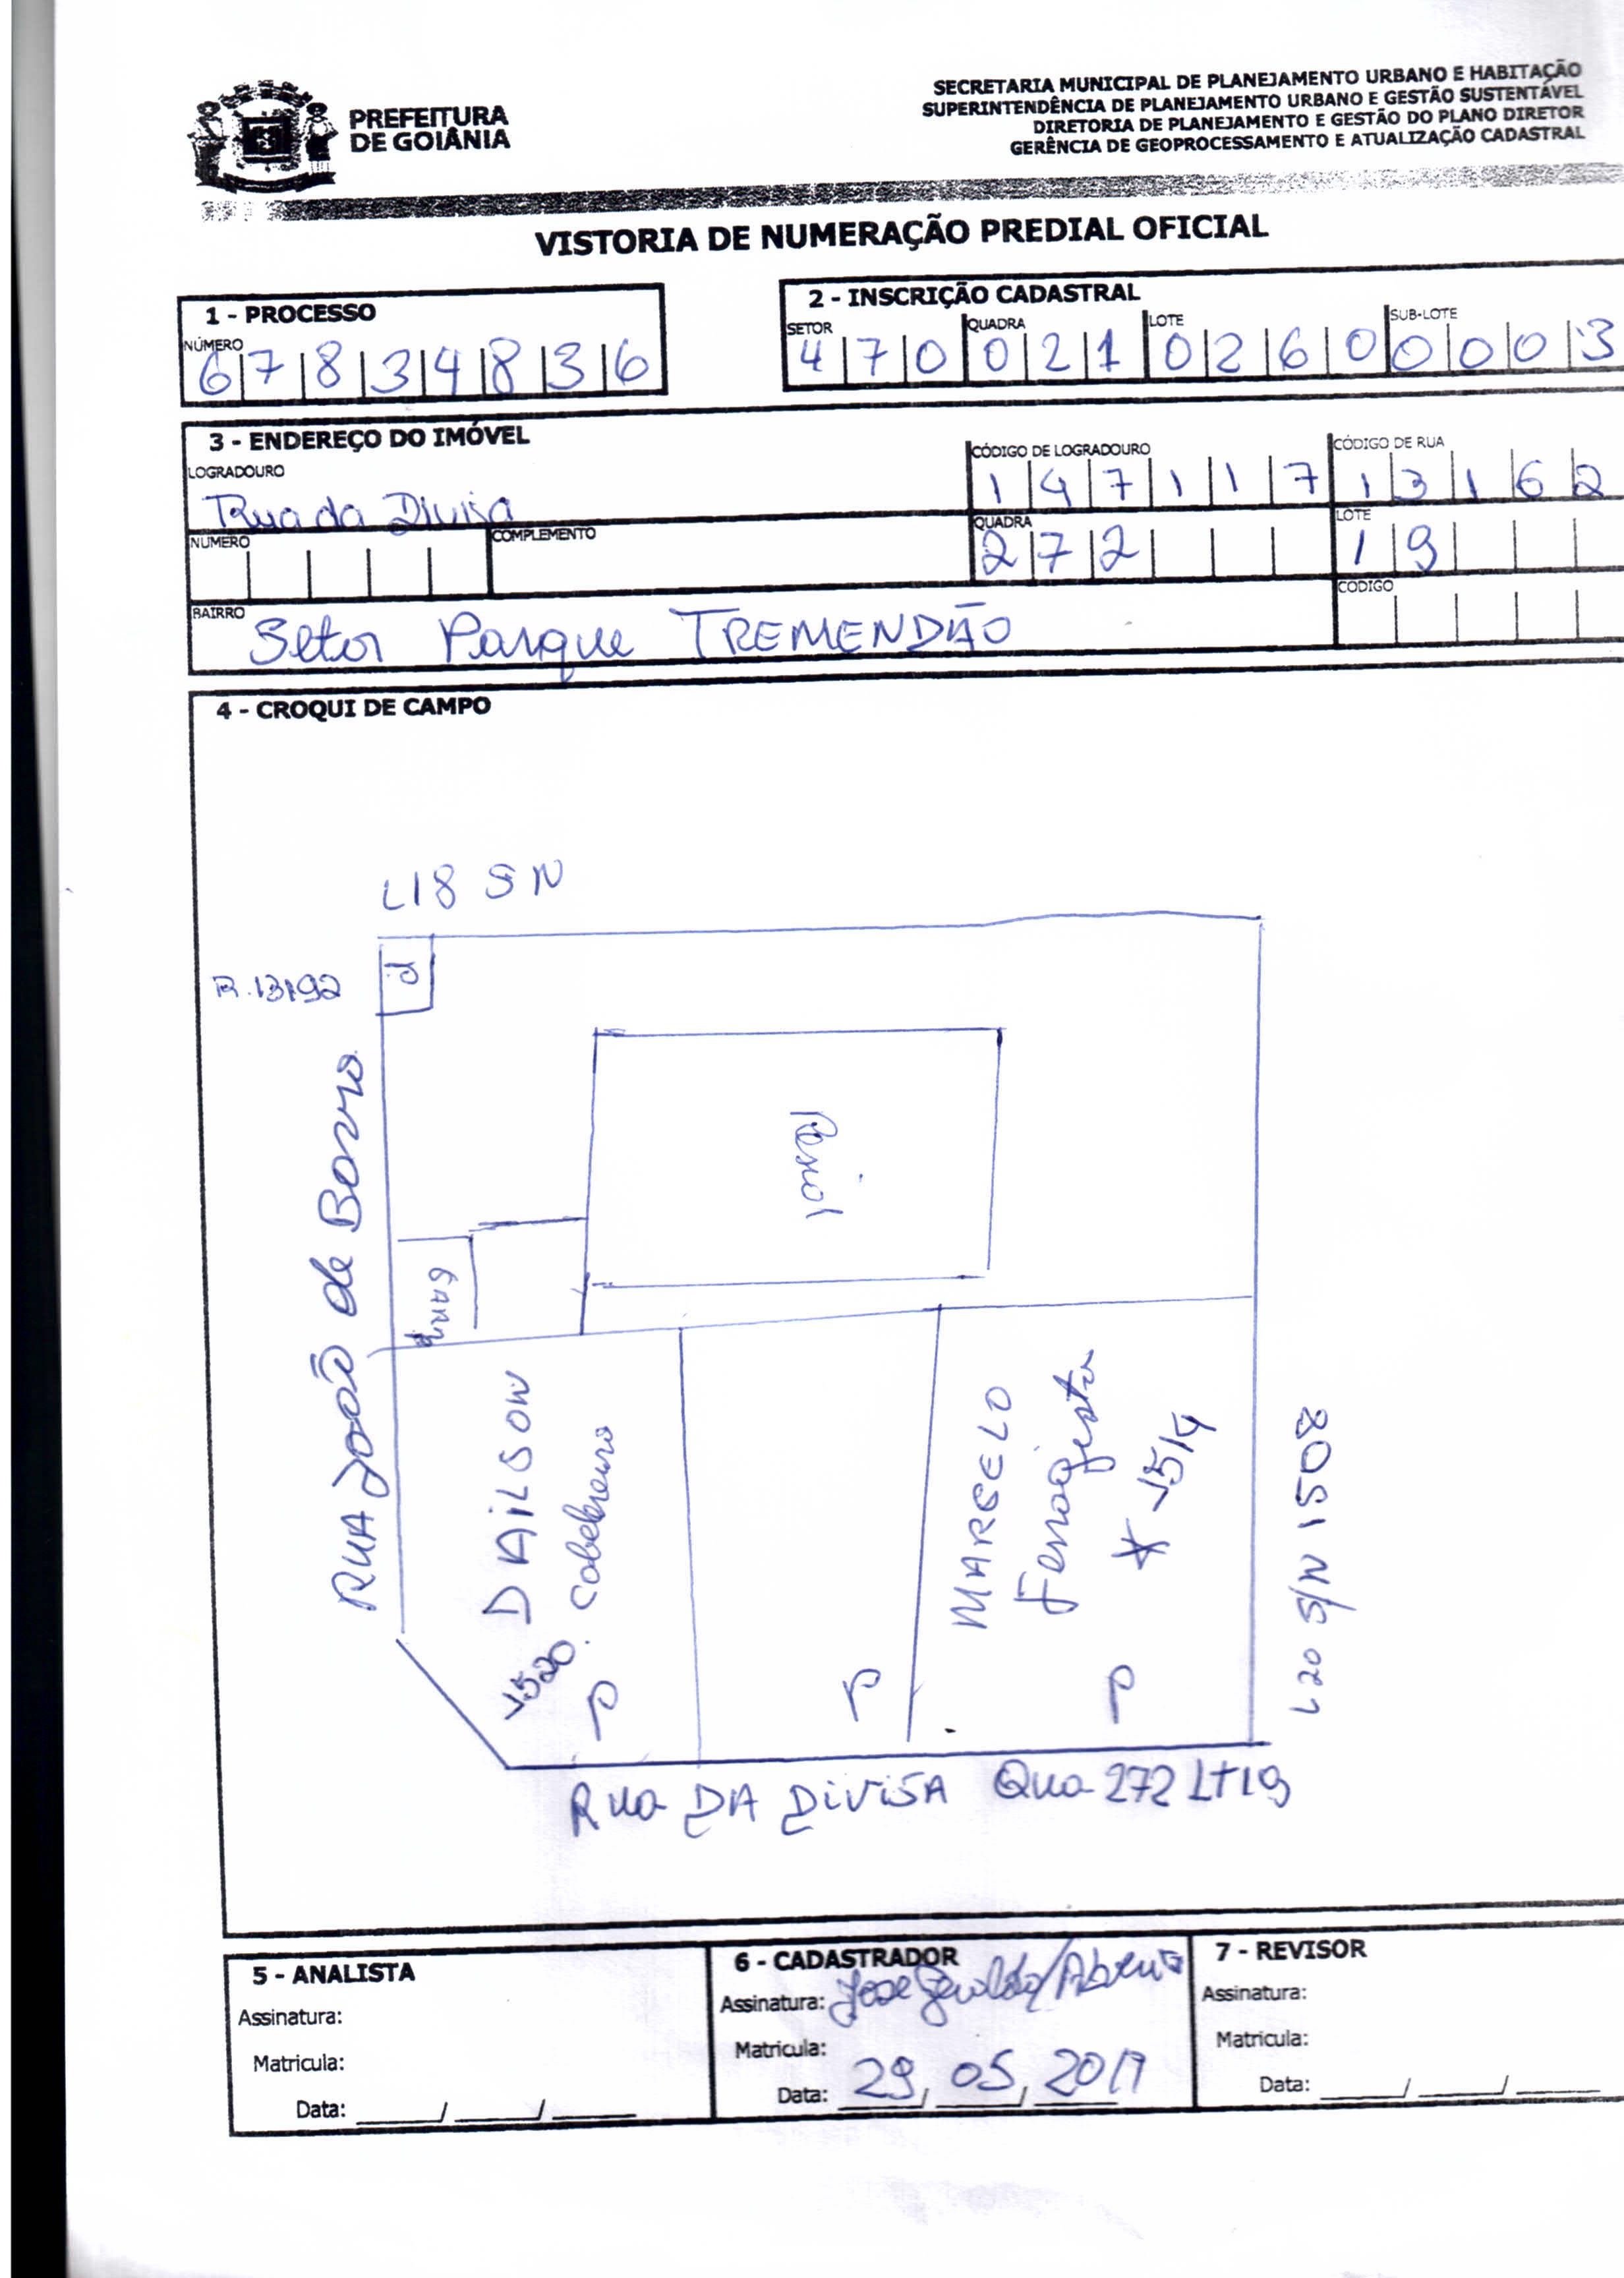 PREFEITURA
DE GOIÂNIA
SECRETARIA MUNICIPAL DE PLANEJAMENTO URBANO E HABITAÇÃO
SUPERINTENDÊNCIA DE PLANEJAMENTO URBANO E GESTÃO SUSTENTÁVEL
DIRETORIA DE PLANEJAMENTO E GESTÃO DO PLANO DIRETOR
GERÊNCIA DE GEOPROCESSAMENTO E ATUALIZAÇÃO CADASTRAL
VISTORIA DE NUMERAÇÃO PREDIAL OFICIAL
1 - PROCESSO
NÚMERO
67834836
2 - INSCRIÇÃO CADASTRAL
SETOR QUADRA LOTE SUB-LOTE
470 021 0260 0003
3 - ENDEREÇO DO IMÓVEL
LOGRADOURO CÓDIGO DE LOGRADOURO CÓDIGO DE RUA
Rua da Divisa 147117 13162
NÚMERO COMPLEMENTO QUADRA LOTE
272 19
BAIRRO CÓDIGO
Setor Parque TREMENDÃO
4 - CROQUI DE CAMPO
L18 SN
R.13192
P
RUA João de Barro
DAILSON
1520
P
P
MARCELO
1514
P
L 20 S/N 1508
Rua DA DIVISA Qua 272 Lt 19
5 - ANALISTA
Assinatura:
Matricula:
Data: ____/____/____
6 - CADASTRADOR
Assinatura:
Matricula:
Data: 29, 05, 2017
7 - REVISOR
Assinatura:
Matricula:
Data: ____/____/____